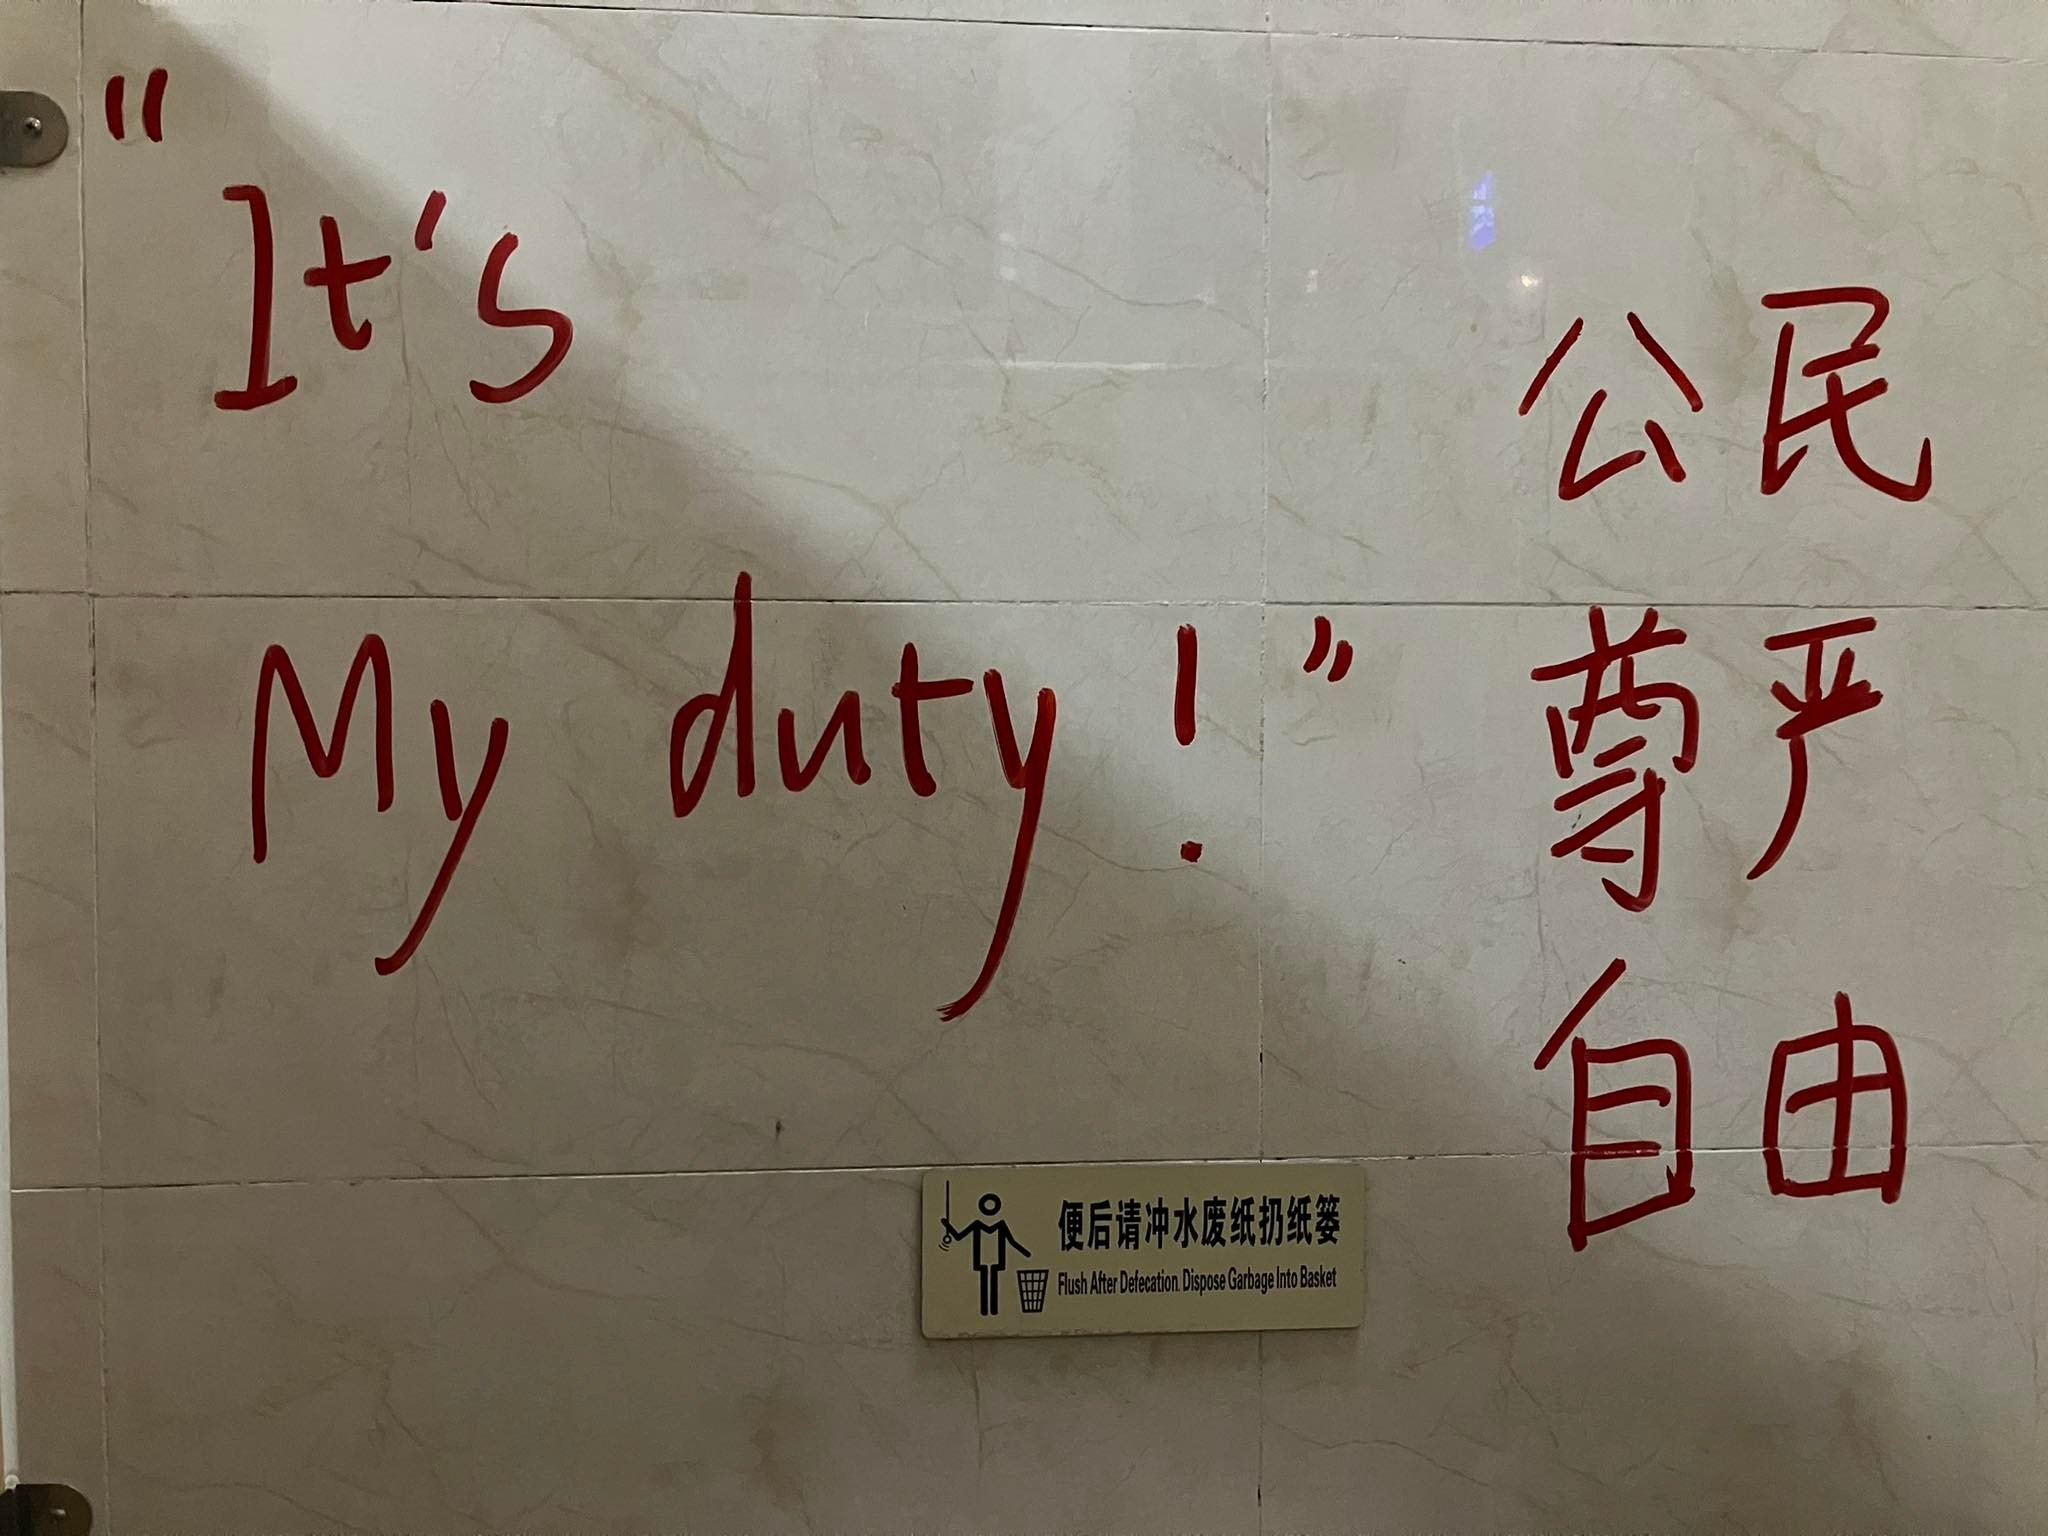 "It's
My duty!"
公民
尊严
自由
便后请冲水废纸扔纸篓
Flush After Defecation. Dispose Garbage Into Basket